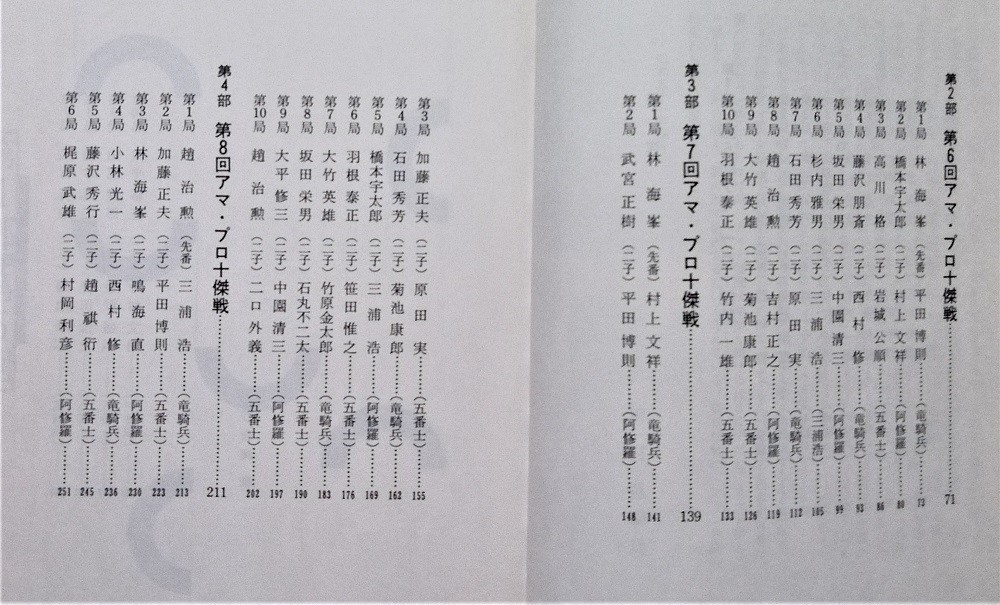 第2部 第6回アマ・プロ十傑戦……71
第1局 林 海峯 (先番) 平田博則……(竜騎兵)……73
第2局 橋本宇太郎 (二子) 村上文祥……(阿修羅)……80
第3局 高川 格 (二子) 岩城公順……(五番士)……86
第4局 藤沢朋斎 (二子) 西村 修……(竜騎兵)……93
第5局 坂田栄男 (二子) 中園清三……(阿修羅)……99
第6局 杉内雅男 (二子) 三浦 浩……(三浦浩)……105
第7局 石田秀芳 (二子) 原田 実……(竜騎兵)……112
第8局 趙 治勲 (二子) 吉村正之……(阿修羅)……119
第9局 大竹英雄 (二子) 菊池康郎……(五番士)……126
第10局 羽根泰正 (二子) 竹内一雄……(五番士)……133
第3部 第7回アマ・プロ十傑戦……139
第1局 林 海峯 (先番) 村上文祥……(竜騎兵)……141
第2局 武宮正樹 (二子) 平田博則……(阿修羅)……148
第3局 加藤正夫 (二子) 原田 実……(五番士)……155
第4局 石田秀芳 (二子) 菊池康郎……(竜騎兵)……162
第5局 橋本宇太郎 (二子) 三浦 浩……(阿修羅)……169
第6局 羽根泰正 (二子) 笹田惟之……(五番士)……176
第7局 大竹英雄 (二子) 竹原金太郎……(竜騎兵)……183
第8局 坂田栄男 (二子) 石丸不二太……(五番士)……190
第9局 大平修三 (二子) 中園清三……(阿修羅)……197
第10局 趙 治勲 (二子) 二口外義……(五番士)……202
第4部 第8回アマ・プロ十傑戦……211
第1局 趙 治勲 (先番) 三浦 浩……(竜騎兵)……213
第2局 加藤正夫 (二子) 平田博則……(五番士)……223
第3局 林 海峯 (二子) 鳴海 直……(阿修羅)……230
第4局 小林光一 (二子) 西村 修……(竜騎兵)……236
第5局 藤沢秀行 (二子) 趙 祺衍……(五番士)……245
第6局 梶原武雄 (二子) 村岡利彦……(阿修羅)……251